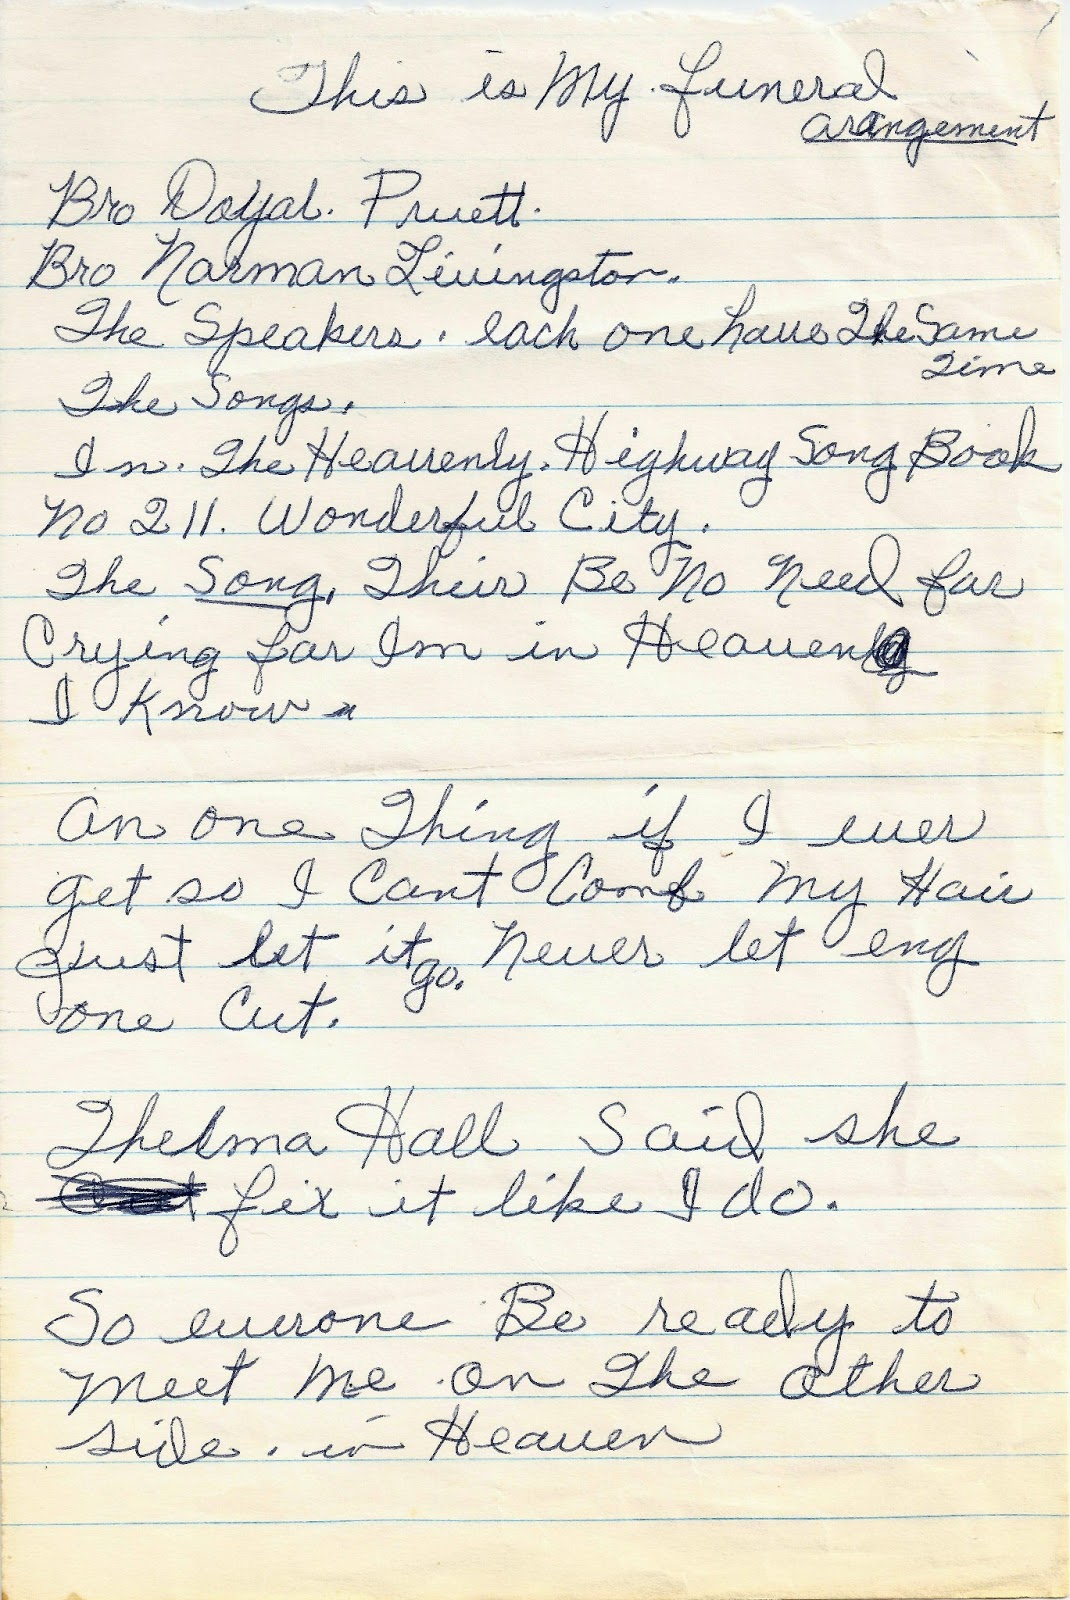 This is My funeral
arangement
Bro Doyal. Pruett.
Bro Narman Livingston.
The Speakers. each one have The Same
Time
The Songs.
In. The Heavenly. Highway Song Book
No 211. Wonderful City.
The Song, Their Be No Need far
Crying far Im in Heaven
I Know
an one Thing if I ever
get so I Cant Comb My Hair
just let it go. Never let eny
one Cut.
Thelma Hall Said she
fix it like I do.
So everone Be ready to
meet me on The other
side. in Heaven